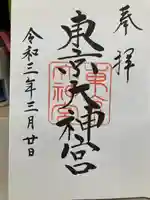 奉拝
東京大神宮
東京大神宮
令和三年三月廿日